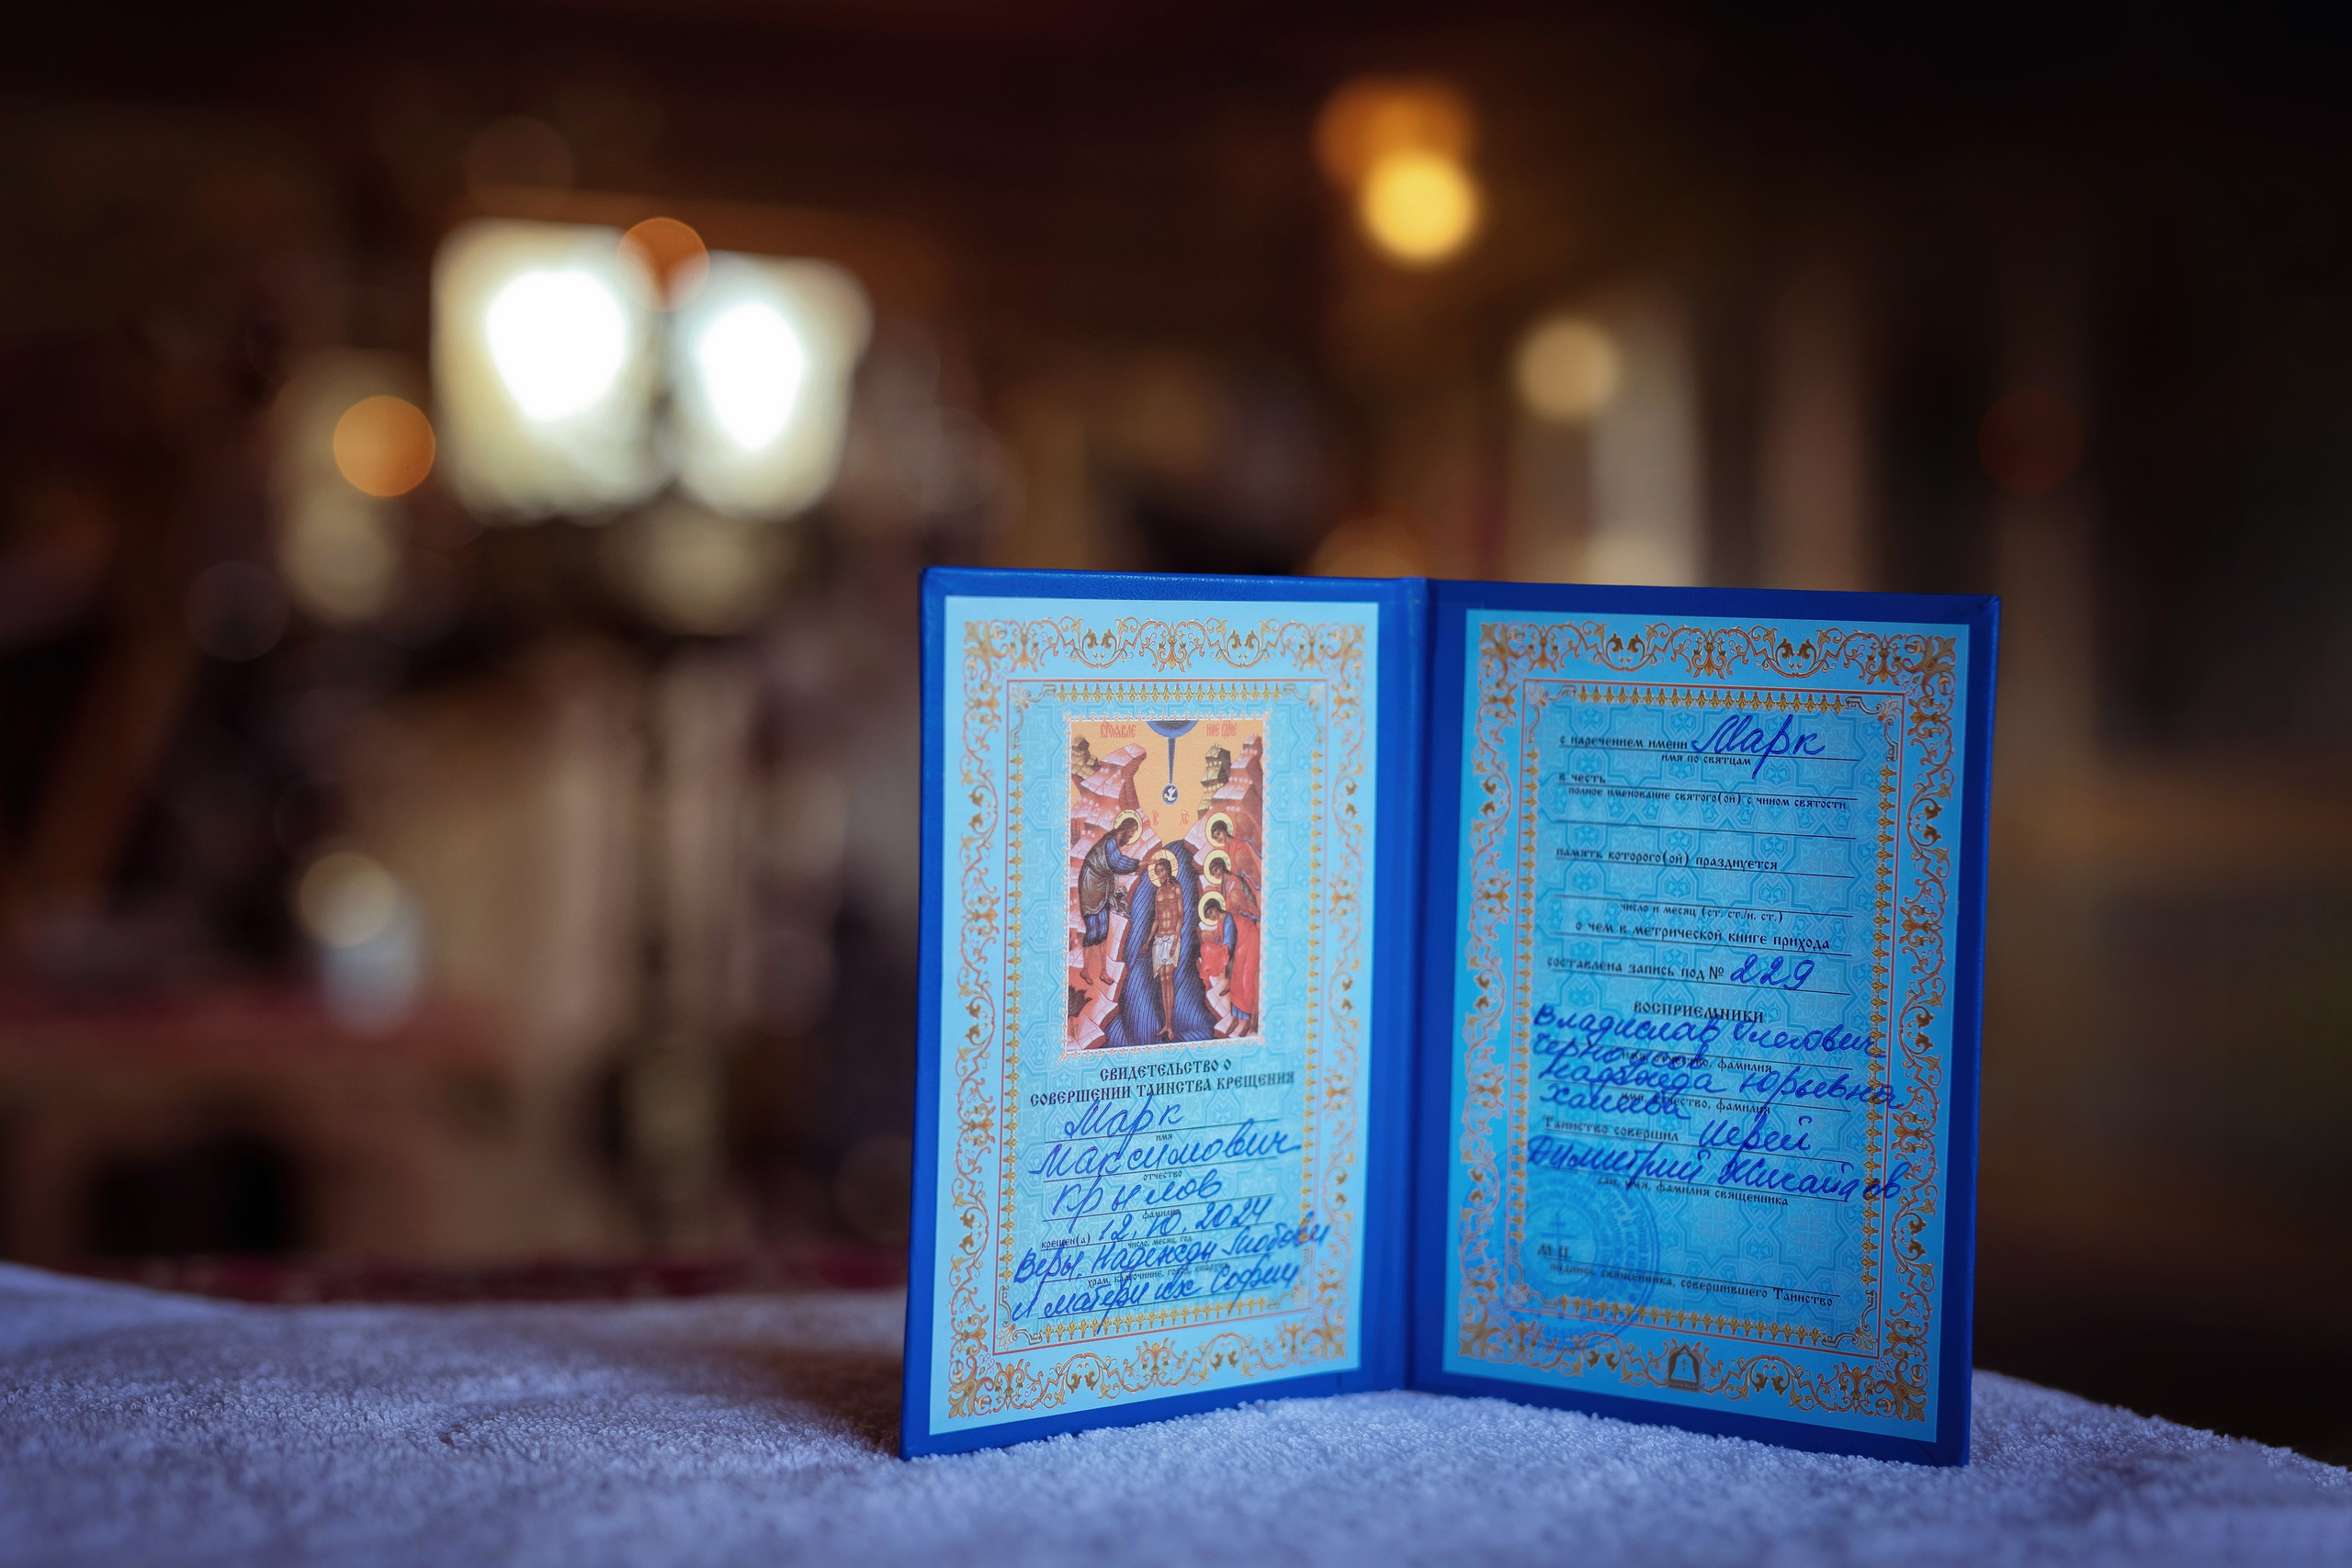 СВИДЕТЕЛЬСТВО О
СОВЕРШЕНИИ ТАИНСТВА КРЕЩЕНИЯ
Марк
имя
Максимович
отчество
Крылов
фамилия
крещен(а) 12.10.2024
число, месяц, год
Веры, Надежды Любови
храм,
И матери их Софии
с наречением имени Марк
имя по святцам
в честь
полное именование святого(ой) с чином святости
память которого(ой) празднуется
число и месяц (ст. ст./н. ст.)
о чем в метрической книге прихода
составлена запись под № 229
ВОСПРИЕМНИКИ
Владислав Олегович
имя, отчество, фамилия
Надежда Юрьевна
имя, отчество, фамилия
Таинство совершил Иерей
Димитрий Михайлов
сан, имя, фамилия священника
М.П.
подпись священника, совершившего Таинство